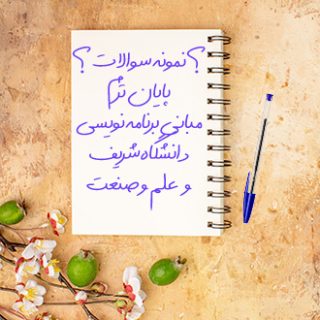 ؟ نمونه سوالات ؟
پایان ترم
مبانی برنامه نویسی
دانشگاه شریف
و علم و صنعت